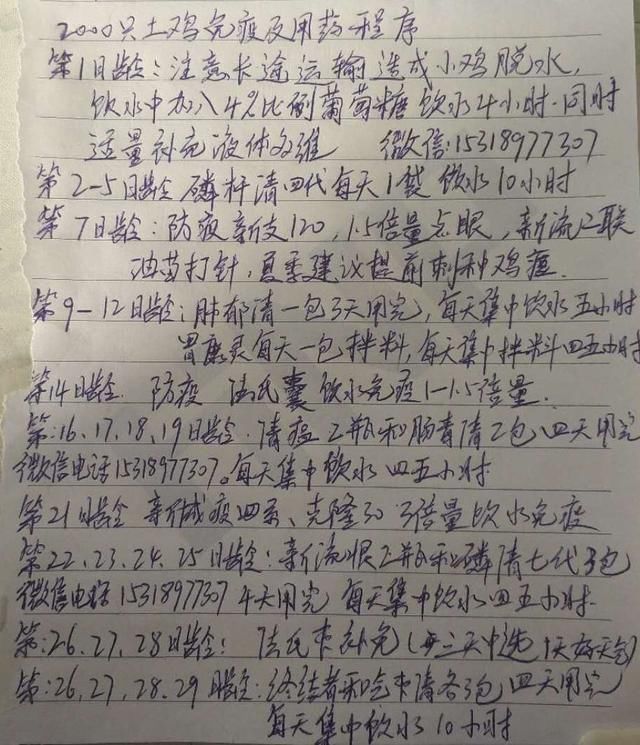 2000只土鸡免疫及用药程序
第1日龄:注意长途运输造成小鸡脱水,
饮水中加入4%比例葡萄糖饮水4小时.同时
适量补充液体多维 微信:15318977307
第2-5日龄 磷杆清四代每天1袋 饮水10小时
第7日龄:防疫新支120,1.5倍量点眼,新流二联
油苗打针,夏季建议提前刺种鸡痘.
第9-12日龄:肺郁清一包3天用完,每天集中饮水五小时
胃康灵每天一包拌料,每天集中拌料四五小时
第14日龄 防疫 法氏囊 饮水免疫1-1.5倍量.
第:16.17.18.19日龄.清瘟二瓶和肠毒清2包 四天用完
微信电话15318977307。每天集中饮水 四五小时
第21日龄 新城疫四系、克隆30 3倍量饮水免疫
第22.23.24.25日龄:新流恨二瓶和磷清七代3包
微信电话15318977307 4天用完 每天集中饮水四五小时.
第:26.27.28日龄: 法氏囊补免(在三天中选1天好天气)
第:26,27,28.29日龄:终结者和 清各3包 四天用完
每天集中饮水10小时